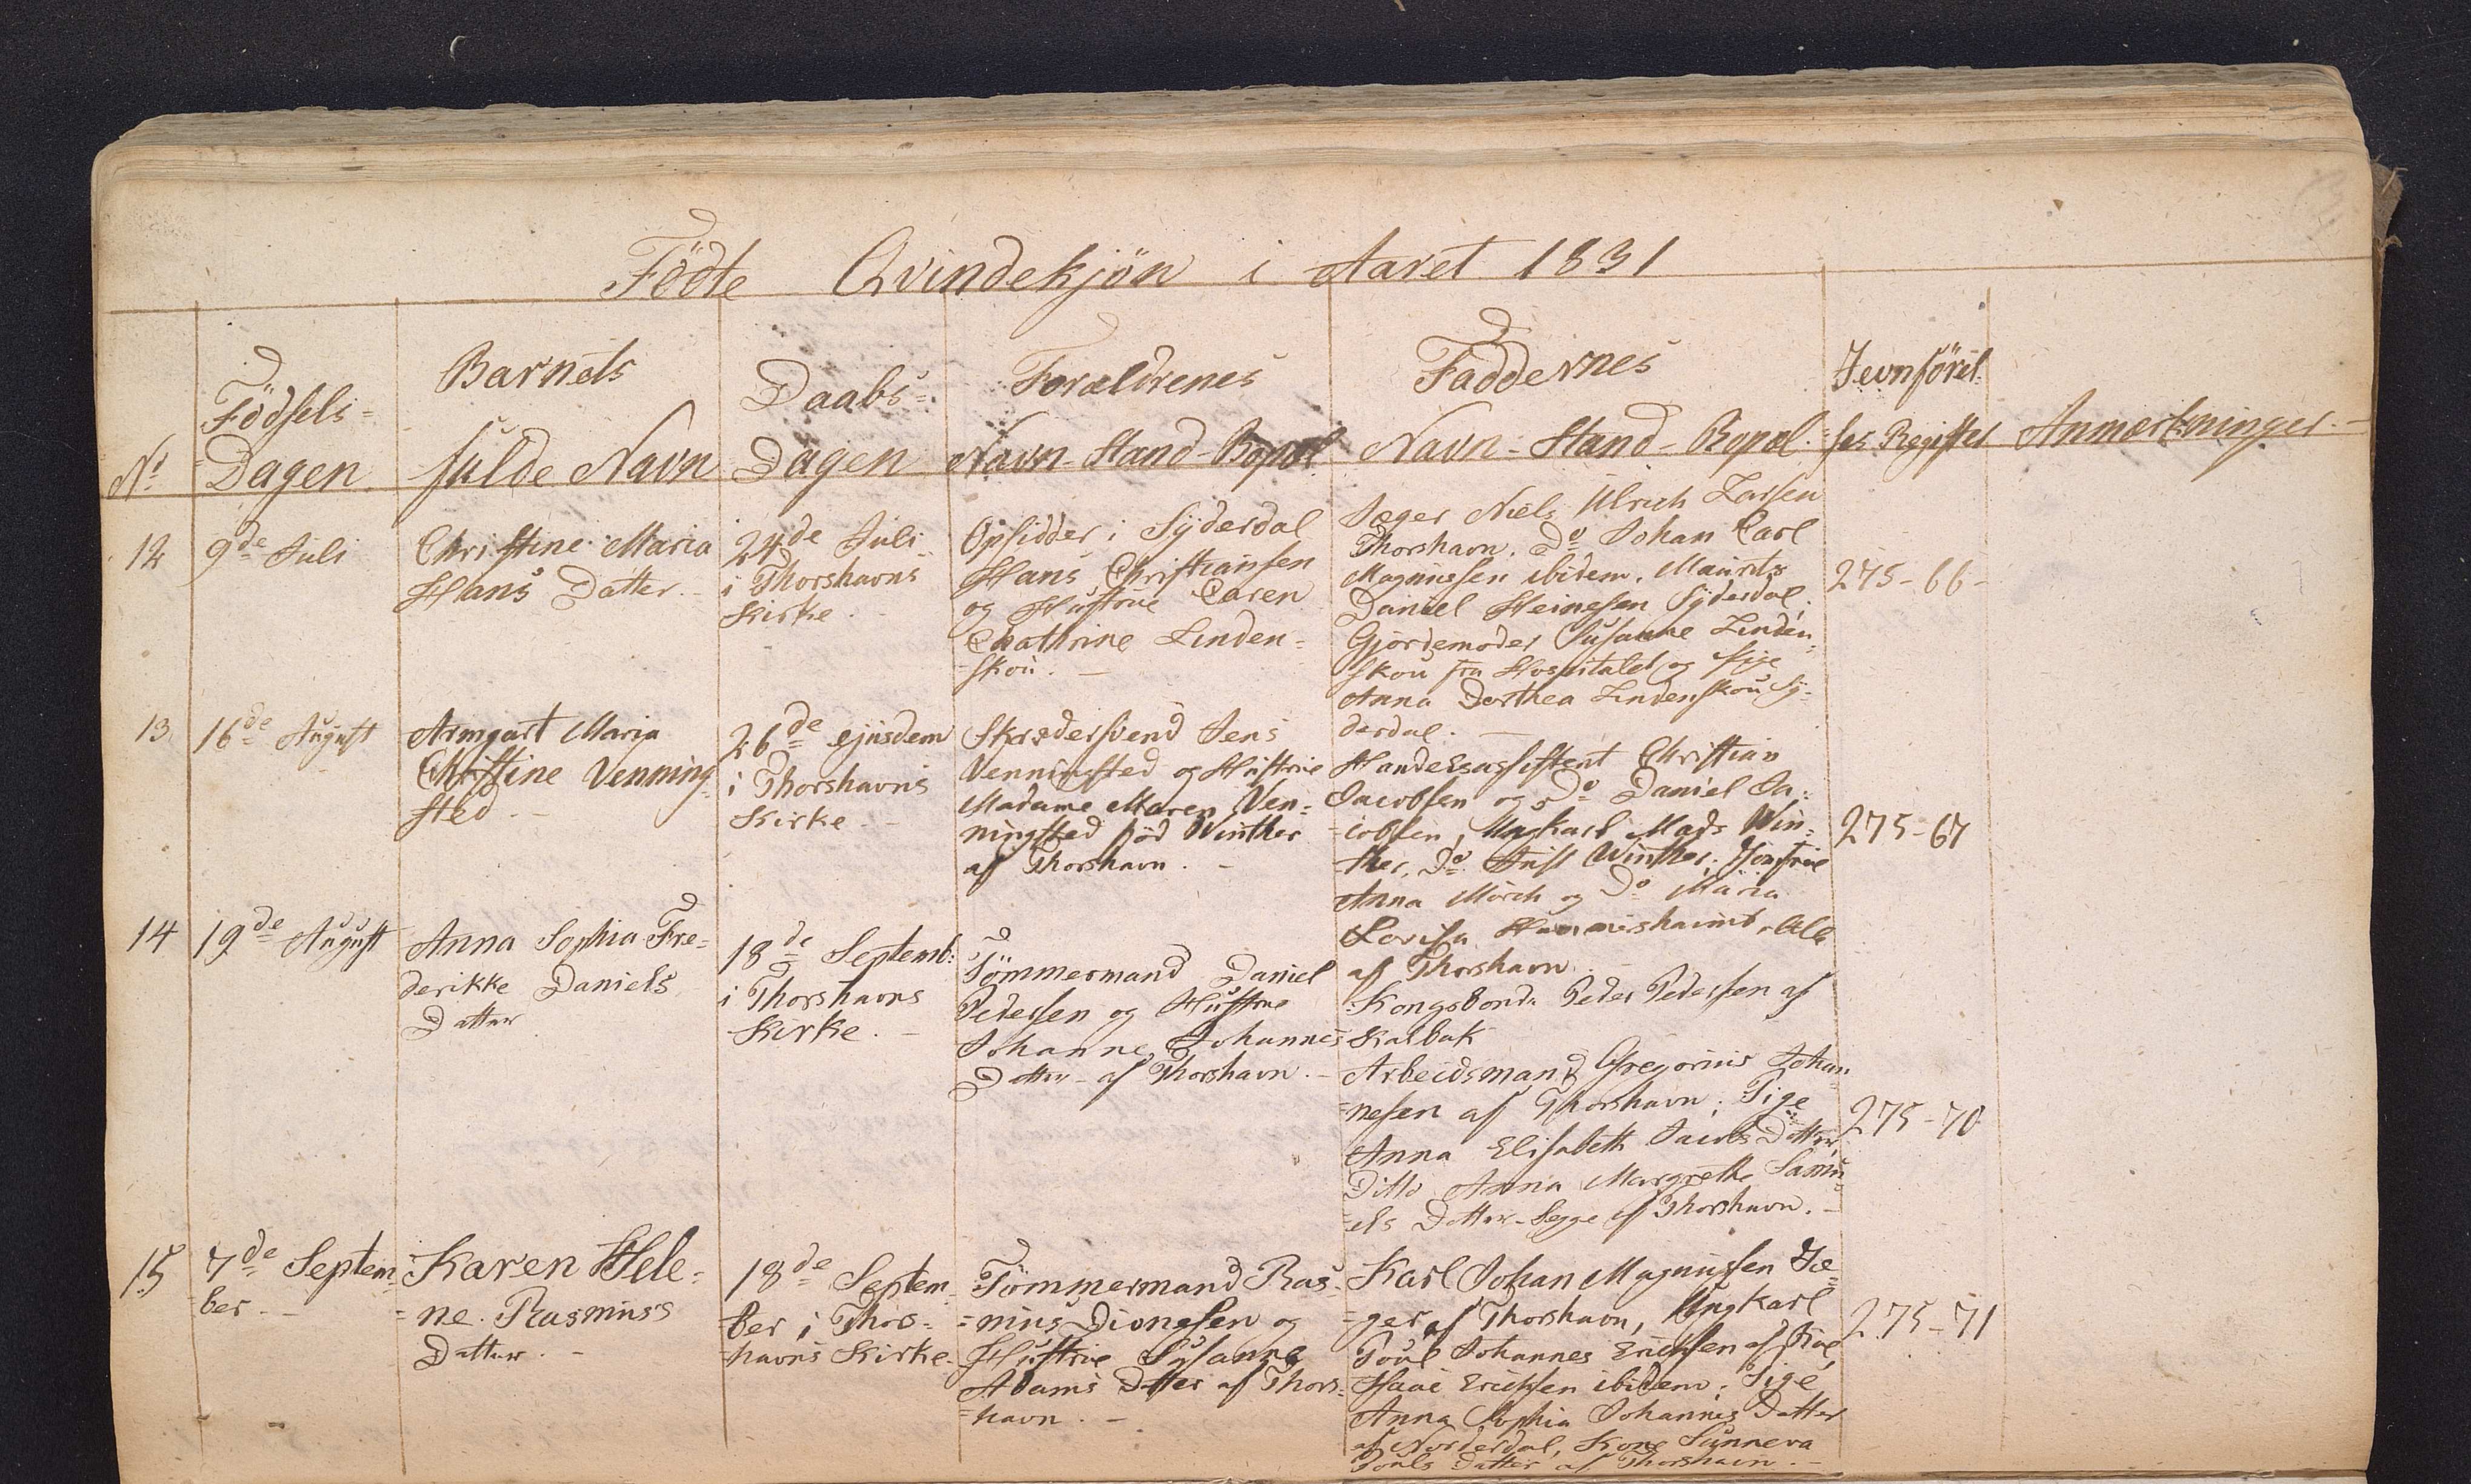 Födte Qvindekjön i Aaret 1831
No
Födsels=
Dagen
Barnets
fulde Navn
Daabs=
Dagen
Forældrenes
Navn-Stand-Bopæl
Faddernes
Navn-Stand-Bopæl
Jevnförel:
ses Register
Anmærkninger.
12
9de Juli
Christine Maria
Hans Datter.
24de Juli
i Thorshavns
Kirke.
Opsidder i Syderdal
Hans Christiansen
og Hustrue Caren
Chathrine Linden=
skou.
Jæger Niels Ulrich Larsen
Thorshavn. Do Johan Carl
Magnussen ibidem. Maurits
Daniel Heinesen Syderdal,
Gjordemoder Susanne Linden
skou fra Hospitalet og Pige
Anna Dorthea Lindenskou Sy=
derdal.
275-66-
13
16de August
Armgart Maria
Christine Venning
sted.
26de ejusdem
i Thorshavns
Kirke.
Skrædersvend Jens
Venningsted og Hustrue
Madame Maren Ven=
ningsted föd Winther
af Thorshavn.
Handelsassistent Christian
Jacobsen og Do Daniel Ja:
cobsen, Ungkarl Mads Win:
ther, Do Winther, Jomfrue
Anna Mörch og Do Maria
Lovisa Hammershaimb, Alle
af Thorshavn.
275-67
14
19de August
Anna Sophia Fre=
derikke Daniels
Datter
18de Septemb:
i Thorshavns
Kirke.
Tömmermand Daniel
Pedersen og Hustrue
Johanne Johannes
Datter af Thorshavn.
Kongsbonde Peder Pedersen af
Kalbak
Arbeidsmand Gregorius Johan
=nesen af Thorshavn; Pige
Anna Elisabeth Jacobs Datter,
Ditto Anna Margrethe Samu
els Datter Begge af Thorshavn.
275-70
15
7de Septem
ber.
Karen Hele=
=ne Rasmus's
Datter.
18de Septem
ber i Thors=
havns Kirke.
Tömmermand Ras=
=mus Dionesen og
Hustrue Susanne
Adams Datter af Thors=
=havn.
Karl Johan Magnussen Jæ=
=ger af Thorshavn, Ungkarl
Poul Johannes Ericksen af
Ericksen ibidem; Pige
Anna Sophia Johannes Datter
af Norderdal, Kone Sunneva
Pouls Datter af Thorshavn.
275-71